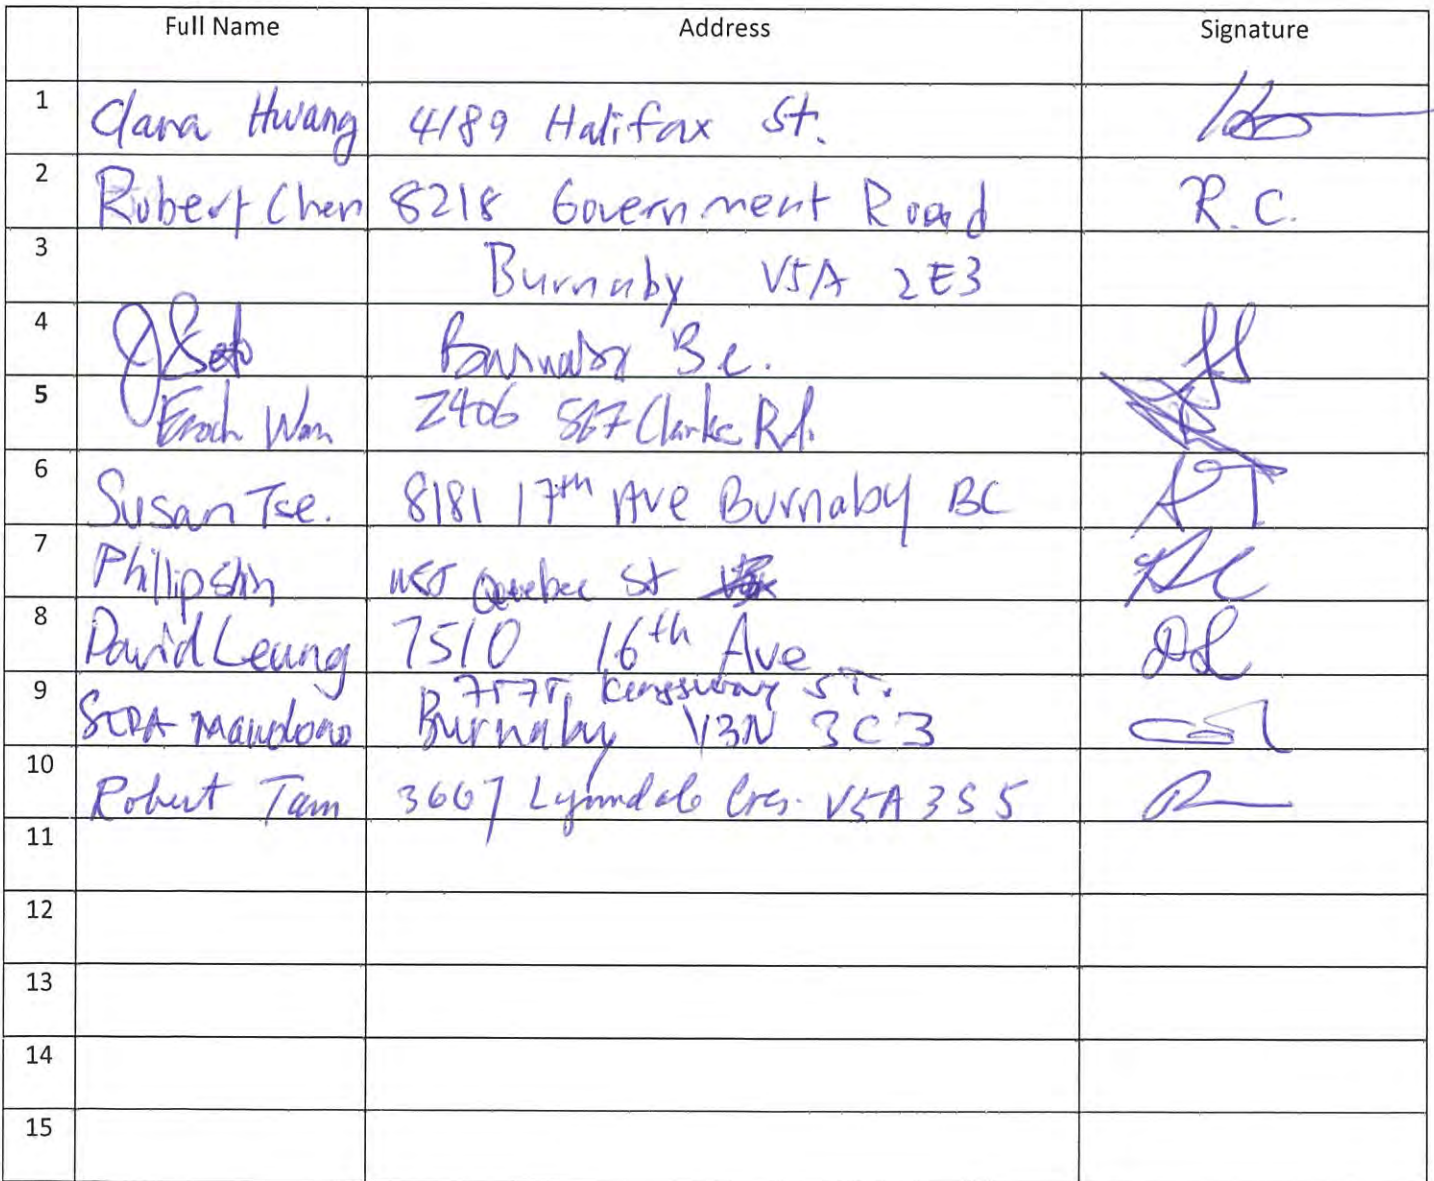 Full Name Address Signature
1 Clara Hwang 4189 Halifax St.
2 Robert Chen 8218 Government Road R.C.
3 Burnaby V5A 2E3
4 J Seto Burnaby B.C.
5 Enoch Wan 2406 567 Clarke Rd.
6 Susan Tse. 8181 17th Ave Burnaby BC
7 Phillip Shin Quebec St
8 David Leung 7510 16th Ave DL
7575, Kingsway ST.
9 Burnaby V3N 3C3
10 Robert Tam 3667 Lynndale Cres. V5A 3S5
11
12
13
14
15